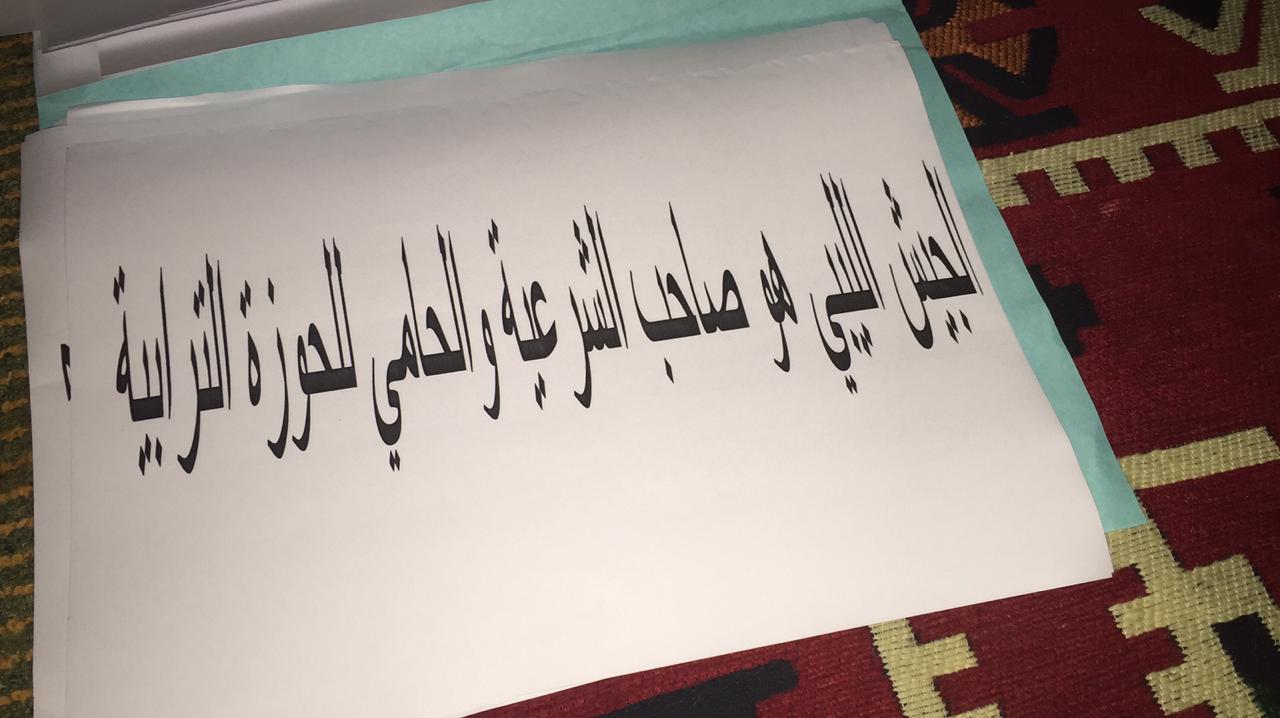 الجيش الليبي هو صاحب الشرعية والحامي للحوزة الترابية